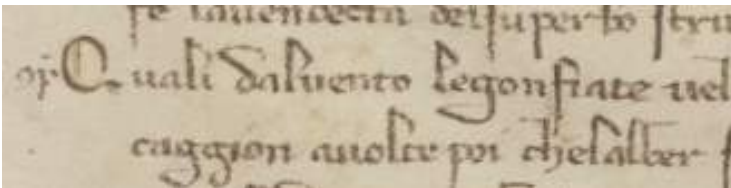 fe lauendecta delsuperbo stru
Quali daluento legonfiate uel
caggion auolte poi chelalber f